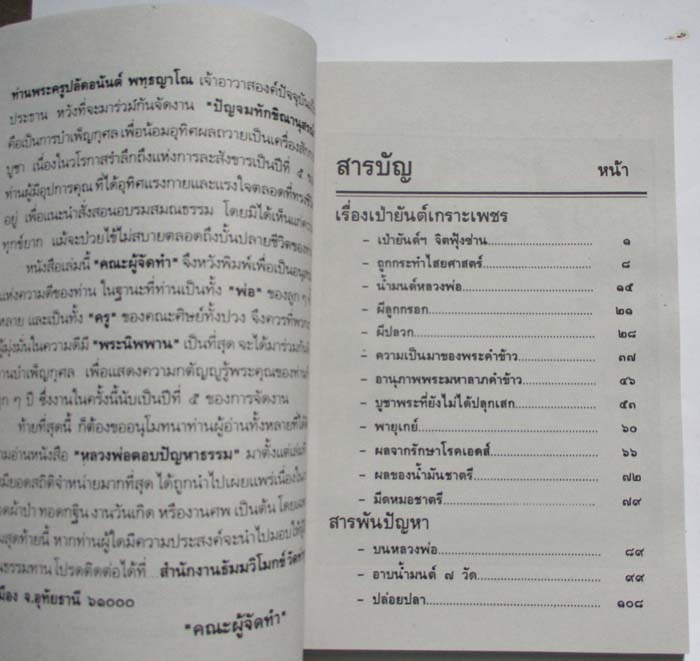 ท่านพระครูปลัดอนันต์ พทฺธญาโณ เจ้าอาวาสองค์ปัจจุบันเป็น
ประธาน หวังที่จะมาร่วมกันจัดงาน "ปัญจมทักขิณานุสรณ์
คือเป็นการบำเพ็ญกุศล เพื่อน้อมอุทิศผลถวายเป็นเครื่องสัก
บูชา เนื่องในวโรกาสรำลึกถึงแห่งการละสังขารเป็นปีที่ ๕
ท่านผู้มีอุปการคุณ ที่ได้อุทิศแรงกายและแรงใจตลอดที่
อยู่ เพื่อแนะนำสั่งสอนอบรมสมณธรรม โดยมิได้เห็นแก่
ทุกข์ยาก แม้จะป่วยไข้ไม่สบายตลอดถึงบั้นปลายชีวิตของ
หนังสือเล่มนี้ "คณะผู้จัดทำ" จึงหวังพิมพ์เพื่อเป็น
แห่งความดีของท่าน ในฐานะที่ท่านเป็นทั้ง "พ่อ" ของลูก ๆ
หลาย และเป็นทั้ง "ครู" ของคณะศิษย์ทั้งปวง จึงควรที่
ผู้มุ่งมั่นในความดีมี "พระนิพพาน" เป็นที่สุด จะได้มาร่วมกัน
บำเพ็ญกุศล เพื่อแสดงความกตัญญูรู้พระคุณของท่าน
ๆ ปี ซึ่งงานในครั้งนี้นับเป็นปีที่ ๕ ของการจัดงาน
ท้ายที่สุดนี้ ก็ต้องขออนุโมทนาท่านผู้อ่านทั้งหลายที่ได้
อ่านหนังสือ "หลวงพ่อตอบปัญหาธรรม" มาตั้งแต่
มียอดสถิติจำหน่ายมากที่สุด ได้ถูกนำไปเผยแพร่เนื่องใน
ผ้าป่า ทอดกฐิน งานวันเกิด หรืองานศพ เป็นต้น โดย
สุดท้ายนี้ หากท่านผู้ใดมีความประสงค์จะนำไปมอบให้
ธรรมทาน โปรดติดต่อได้ที่ ... สำนักงานธัมมวิโมกข์ วัด
เมือง จ.อุทัยธานี ๖๑๐๐๐
"คณะผู้จัดทำ"
สารบัญ หน้า
เรื่องเป่ายันต์เกราะเพชร
– เป่ายันต์ฯ จิตฟุ้งซ่าน........ ๑
– ถูกกระทำไสยศาสตร์........ ๘
– น้ำมนต์หลวงพ่อ........ ๑๕
– ผีลูกกรอก........ ๒๑
– ผีปลวก........ ๒๘
– ความเป็นมาของพระคำข้าว........ ๓๗
– อานุภาพพระมหาลาภคำข้าว........ ๔๖
– บูชาพระที่ยังไม่ได้ปลุกเสก........ ๕๓
– พายุเกย์........ ๖๐
– ผลจากรักษาโรคเอดส์........ ๖๖
– ผลของน้ำมันชาตรี........ ๗๒
– มีดหมอชาตรี........ ๗๙
สารพันปัญหา
– บนหลวงพ่อ........ ๘๙
– อาบน้ำมนต์ ๗ วัด........ ๙๙
– ปล่อยปลา........ ๑๐๘